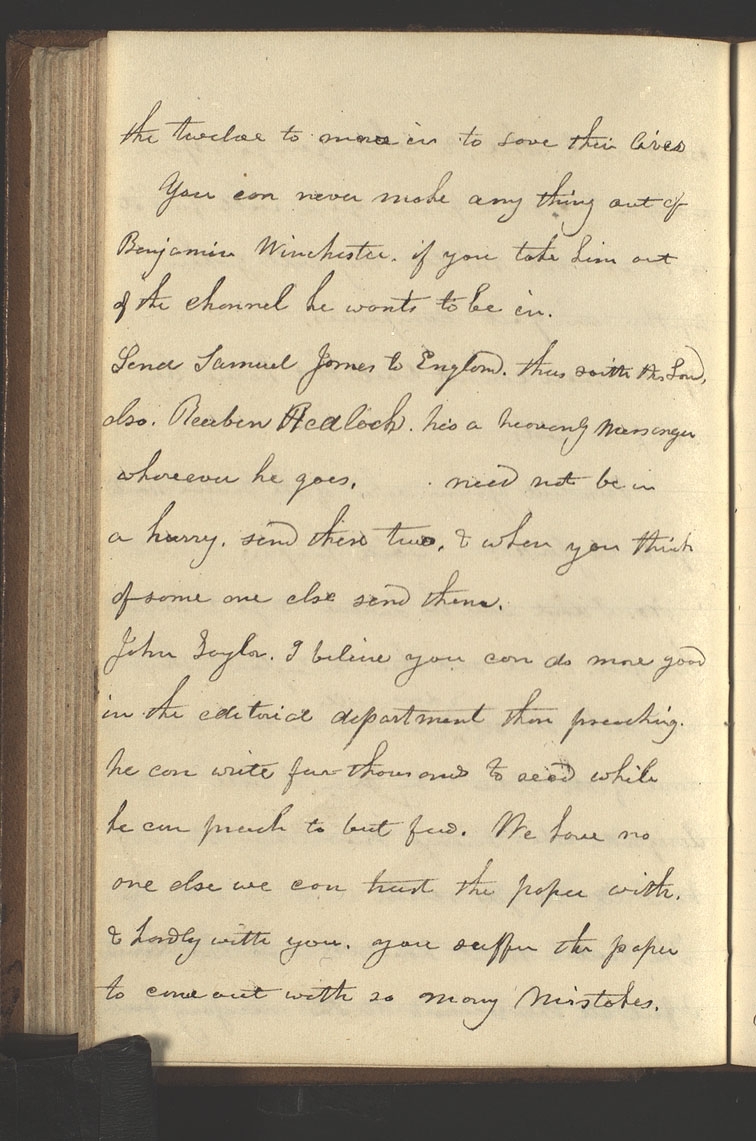 the twelve to move in to save their lives
You can never make any thing out of
Benjamin Winchester. if you take him out
of the channel he wants to be in.
Send Samuel James to England. thus saith the Lord,
also. Reuben Hedlock. he's a heavenly messenger
whereever he goes. need not be in
a hurry. send these two. & when you think
of some one else send them.
John Taylor. I believe you can do more good
in the editorial department than preaching.
he can write for thousands to read while
he can preach to but few. We have no
one else we can trust the paper with.
& hardly with you. you suffer the paper
to come out with so many mistakes.